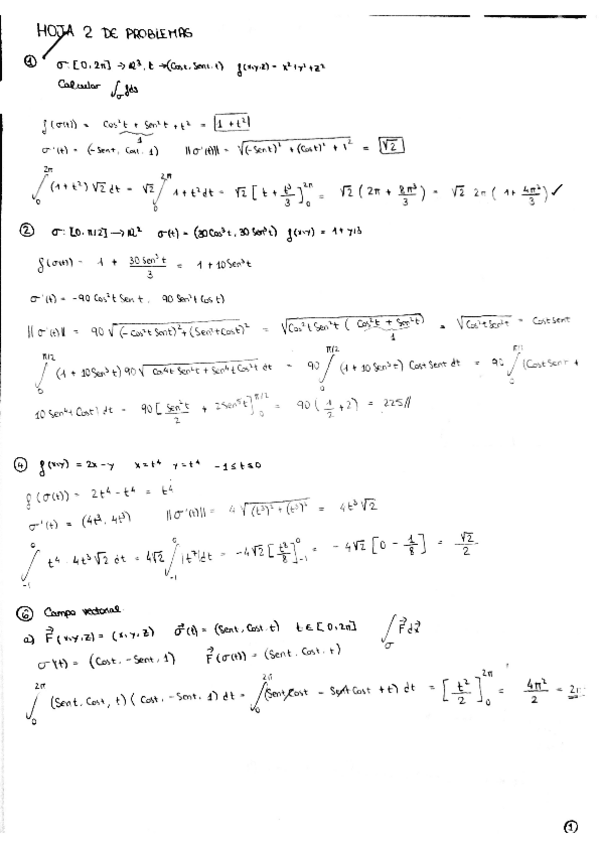 HOJA 2 DE PROBLEMAS
① σ: [0, 2π] → R³, t → (Cost, Sent, t) f(x,y,z) = x² + y² + z²
Calcular ∫_σ f ds
f(σ(t)) = Cos²t + Sen²t + t² = 1 + t²
1
σ'(t) = (-Sent, Cost, 1) ||σ'(t)|| = √((-Sent)² + (Cost)² + 1²) = √2
∫₀^{2π} (1+t²) √2 dt = √2 ∫₀^{2π} 1 + t² dt = √2 [t + t³/3]₀^{2π} = √2 (2π + 8π³/3) = √2 2π (1 + 4π²/3) ✓
② σ: [0, π/2] → R² σ(t) = (30Cos³t, 30Sen³t) f(x,y) = 1 + y/3
f(σ(t)) = 1 + 30Sen³t/3 = 1 + 10Sen³t
σ'(t) = -90 Cos²t Sent, 90 Sen²t Cost)
||σ'(t)|| = 90 √((-Cos²t Sent)² + (Sen²t Cost)²) = √(Cos²t Sen²t (Cos²t + Sen²t)) = √(Cos²t Sen²t) = Cost Sent
1
∫₀^{π/2} (1 + 10Sen³t) 90 √(Cos⁴t Sen²t + Sen⁴t Cos²t) dt = 90 ∫₀^{π/2} (1 + 10Sen³t) Cost Sent dt = 90 ∫₀^{π/2} (Cost Sent +
10 Sen⁴t Cost) dt = 90 [Sen²t/2 + 2Sen⁵t]₀^{π/2} = 90 (1/2 + 2) = 225//
④ f(x,y) = 2x - y x = t⁴ y = t⁴ -1 ≤ t ≤ 0
f(σ(t)) = 2t⁴ - t⁴ = t⁴
σ'(t) = (4t³, 4t³) ||σ'(t)|| = 4 √((t³)² + (t³)²) = 4t³√2
∫₋₁⁰ t⁴ · 4t³ √2 dt = 4√2 ∫₋₁⁰ |t⁷| dt = -4√2 [t⁸/8]₋₁⁰ = -4√2 [0 - 1/8] = √2/2
⑥ Campo vectorial
a) F⃗(x,y,z) = (x,y,z) σ⃗(t) = (Sent, Cost, t) t ∈ [0, 2π] ∫_σ F⃗ ds⃗
σ'(t) = (Cost, -Sent, 1) F⃗(σ(t)) = (Sent, Cost, t)
∫₀^{2π} (Sent, Cost, t) (Cost, -Sent, 1) dt = ∫₀^{2π} (Sent Cost - Sent Cost + t) dt = [t²/2]₀^{2π} = 4π²/2 =
①